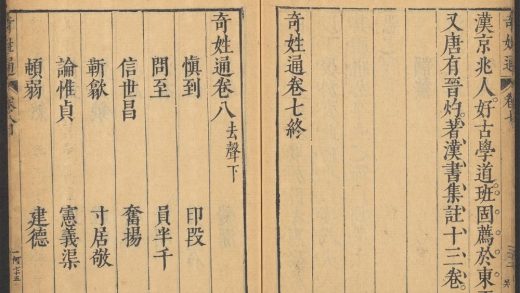 奇姓通 卷七
漢京兆人好古學道班固薦於東
又唐有晉灼著漢書集註十三卷
奇姓通卷七終
奇姓通卷八 去聲下
慎到 印段
問至 員半千
信世昌 奮揚
靳歙 寸居敬
論惟貞 憲義渠
頓弱 建德
奇姓通 卷八